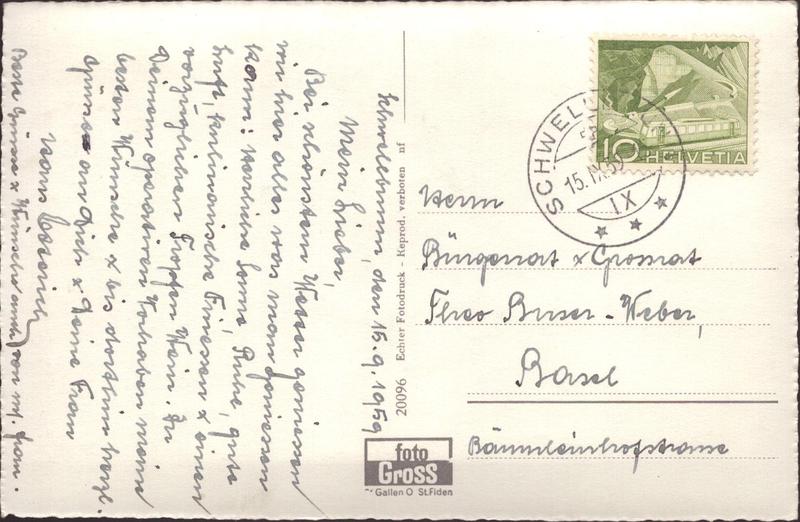 Schwellbrunn, den 15.9.1959
Mein Lieber,
Bei schönstem Wetter geniessen
wir hier alles was man geniessen
kann: Herrliche Sonne, Ruhe, gute
Luft, kulinarische Finessen & einen
vorzüglichen Tropfen Wein. Zu
Deinem operativen Vorhaben meine
besten Wünsche & bis dorthin herzl.
Grüsse an Dich & Deine Frau
Hans
Beste Grüsse & Wünsche auch von m. Frau.
20096 Echter Fotodruck - Reprod. verboten nf
foto
Gross
St. Gallen O St.Fiden
10 HELVETIA
SCHWELLBRUNN
15.IX.59
IX
Herrn
Bürgerrat & Grossrat
Theo Buser-Weber,
Basel
Bäumleinhofstrasse